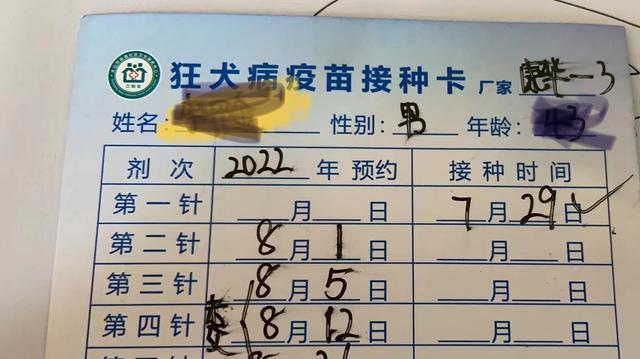 狂犬病疫苗接种卡 厂家 康华-3
姓名: 性别: 男 年龄: 43
剂次 2022年 预约 接种时间
第一针 月 日 7月29日
第二针 8月1日 月 日
第三针 8月5日 月 日
第四针 8月12日 月 日